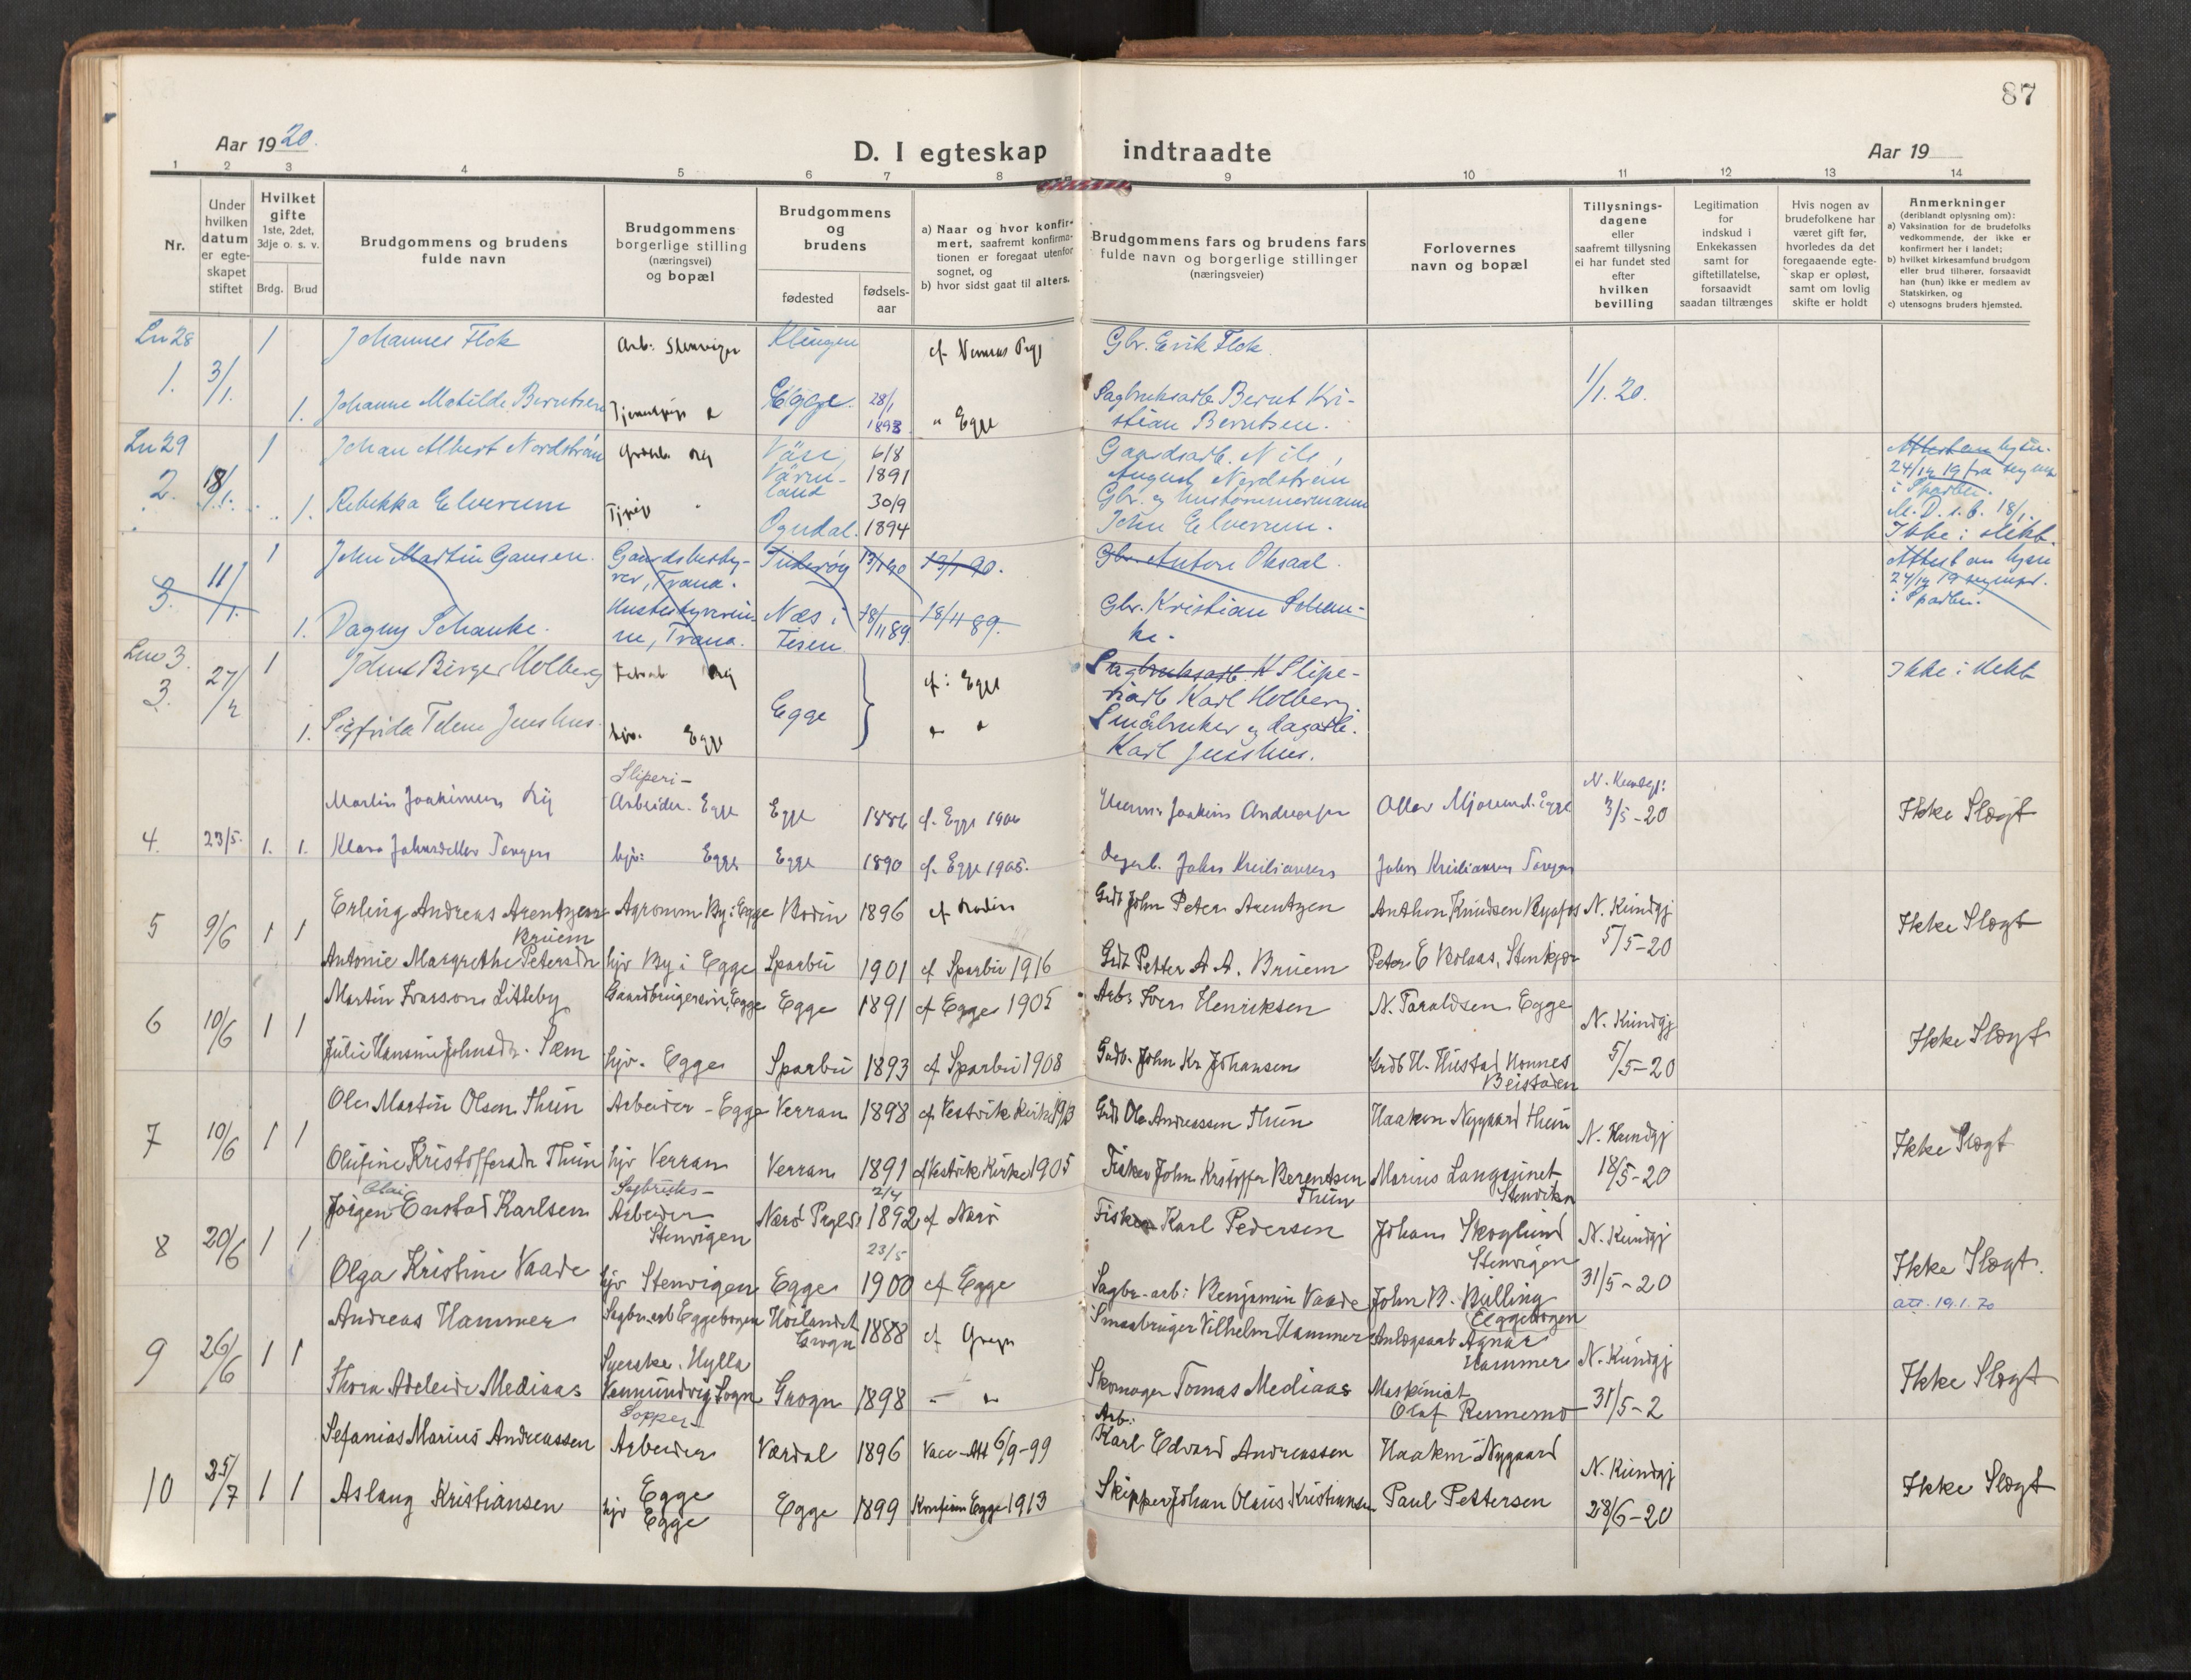 87
Aar 1920.
D. I egteskap indtraadte
Aar 19
1 2 3 4 5 6 7 8 9 10 11 12 13 14
Nr.
Under hvilken datum er egte-skapet stiftet
Hvilket gifte
1ste, 2det, 3dje o. s. v.
Brdg. Brud
Brudgommens og brudens fulde navn
Brudgommens borgerlige stilling (næringsvei) og bopæl
Brudgommens og brudens
fødested
fødsels-aar
a) Naar og hvor konfir-mert, saafremt konfirma-tionen er foregaat utenfor sognet, og
b) hvor sidst gaat til alters.
Brudgommens fars og brudens fars fulde navn og borgerlige stillinger (næringsveier)
Forlovernes navn og bopæl
Tillysnings-dagene eller saafremt tillysning ei har fundet sted efter hvilken bevilling
Legitimation for indskud i Enkekassen samt for giftetillatelse, forsaavidt saadan tiltrænges
Hvis nogen av brudefolkene har været gift før, hvorledes da det foregaaende egte-skap er opløst, samt om lovlig skifte er holdt
Anmerkninger
(deriblandt oplysning om):
a) Vaksination for de brudefolks vedkommende, der ikke er konfirmert her i landet;
b) hvilket kirkesamfund brudgom eller brud tilhører, forsaavidt han (hun) ikke er medlem av Statskirken, og
c) utensogns bruders hjemsted.
Ln 28 1 Johannes Flek Arb. Klingen Gbr. Erik Flek.
1. 3/1. 1. Johanne Matilde Berntsen Egge. 28/1 1893 " Egge Sagbruksarb. Bernt Kri-stian Berntsen. 1/1. 20.
Ln 29 1 Johan Albert Nordström Väse, Värm-land 6/8 1891 Gaardsarb. Nils August Nordström
2. 18/1. 1. Rebekka Elverum Ogndal. 30/9 1894 Gbr. og hustømmermann John Elverum. Ikke i slekt.
3. 11/1. 1 John Martin Hansen. Gaardsbesty-rer, Trana. Inderøy 13/1 90 13/1 90. Gbr. Anton Oksaal.
1. Dagny Schanke. Husbestyrerin-ne, Trana. Næs i 18/11 89 18/11 89. Gbr. Kristian Schan-ke.
Lno 3. 1 Johns Birger Holberg Egge cf: Egge Sagbruksarb. Slipe-riarb Karl Holberg. Ikke i slekt
3. 27/2 1. Sigfrida Telene Jenshus. hjv. Egge Småbruker og dagarb. Karl Jenshus.
Martin Joakimsen Sliperi-Arbeider. Egge Egge 1886 cf. Egge Joakim Andreasen N. Kundgj: 3/5-20 Ikke Slægt
4. 23/5. 1. 1. Klara hjv: Egge Egge 1890 cf. Egge 1905. John Kristiansen John Kristiansen
5 9/6 1 1 Erling Andreas Arentzen Agronom By i Egge Bodin 1896 cf Bodin Grdb John Peter Arentzen Anthon Knudsen Byafos N. Kundgj 5/5-20 Ikke Slægt
Antonie Margrethe Petersdr Bruem hjv By i Egge Sparbu 1901 cf Sparbu 1916 Grdb Petter A A. Bruem Peter E Bolaas, Stenkjær
6 10/6 1 1 Martin Ivarsson Litleby Gaardbrugersøn, Egge Egge 1891 cf Egge 1905 Arb: Iver Henriksen N. Taraldsen Egge N. Kundgj 5/5-20 Ikke Slægt
Julie Hansine Johnsdr. Sæm hjv. Egge Sparbu 1893 cf Sparbu 1908 Gadb. John Kr Johansen Grdb H. Hustad Nonnes Beistaden
7 10/6 1 1 Ole Martin Olsen Thun Arbeider - Egge Verran 1898 cf Vestvik Kirke 1913 Grdb Ole Andreassen Thun Haakon Nygaard Thun N. Kundgj 18/5-20 Ikke Slægt
Olufine Kristoffersdr Thun hjv Verran Verran 1891 cf Vestvik Kirke 1905 Fisker John Kristoffer Berentsen Thun Marius Langsjinet Stenviken
8 20/6 1 1 Jørgen Olai Enstad Karlsen Sagbruks-Arbeider Stenvigen Nærø Prgld 2/4 1892 cf Nærø Fisker Karl Pedersen Johan Skoglund Stenvigen N. Kundgj 31/5-20 Ikke Slægt.
Olga Kristine Vaade hjv Stenvigen Egge 23/5 1900 cf Egge Sagbr-arb: Benjamin Vaade John B. Bulling Eggebogen att. 19.1.70
9 26/6 1 1 Andreas Hammer Sagbr.arb Eggebogen Høilandet Grogn 1888 cf Grogn Smaabruger Vilhelm Hammer Anlægsarb Agnar Hammer N. Kundgj 31/5-2 Ikke Slægt
Thora Adeleide Mediaas Syerske. Hylla Vemundvig Sogn Grogn 1898 - " Skomager Tomas Mediaas Maskinist Olaf Rennemo
10 25/7 1 1 Sefanias Marius Andreassen Arbeider Egge Værdal 1896 Vacc-Att 6/9-99 Arb: Karl Edvard Andreassen Haakon Nygaard N. Kundgj 28/6-20 Ikke Slægt
Aslaug Kristiansen hjv Egge Egge 1899 Konfirm Egge 1913 Skipper Johan Olaus Kristiansen Paul Pettersen